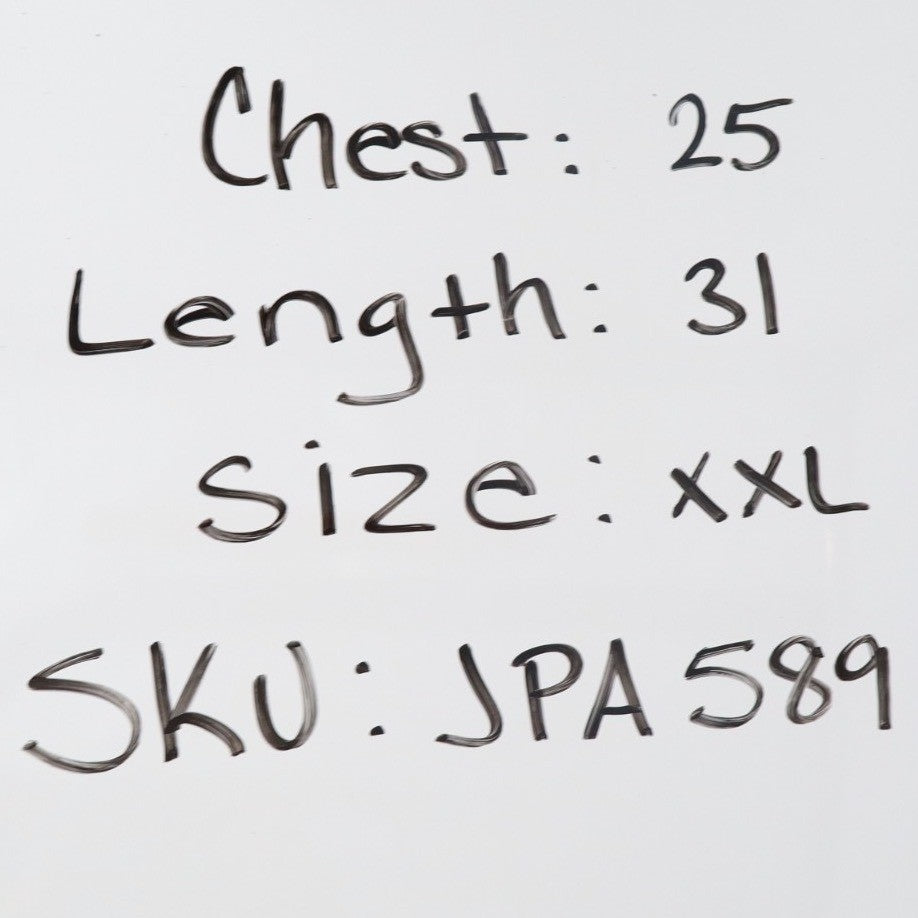 Chest: 25
Length: 31
Size: XXL
SKU: JPA589